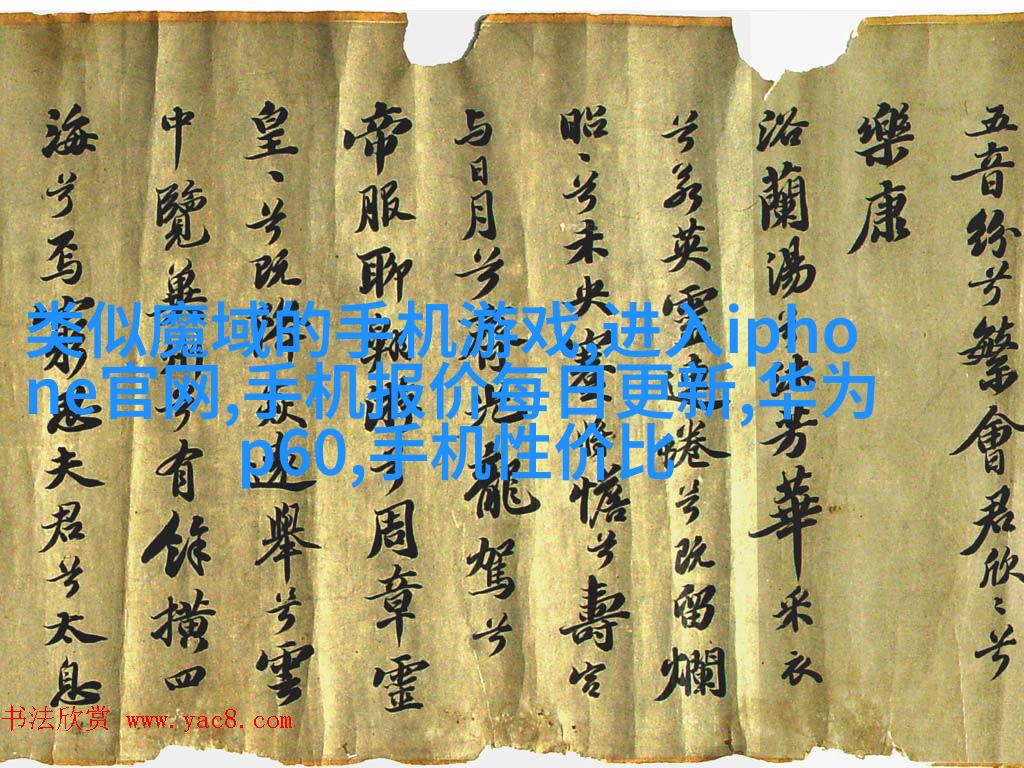 五音紛兮繁會君欣〻兮
樂康
浴蘭湯兮沐芳華采衣
兮若英靈連卷兮既留爛
昭〻兮未央蹇將憺兮壽宮
与日月兮齊光龍駕兮
帝服聊翱遊兮周章靈
皇〻兮既降猋遠舉兮雲
中覽兾州兮有餘橫四
海兮焉窮思夫君兮太息
类似魔域的手机游戏,进入ipho
ne官网,手机报价每日更新,华为
p60,手机性价比
书法欣赏 www.yac8.com